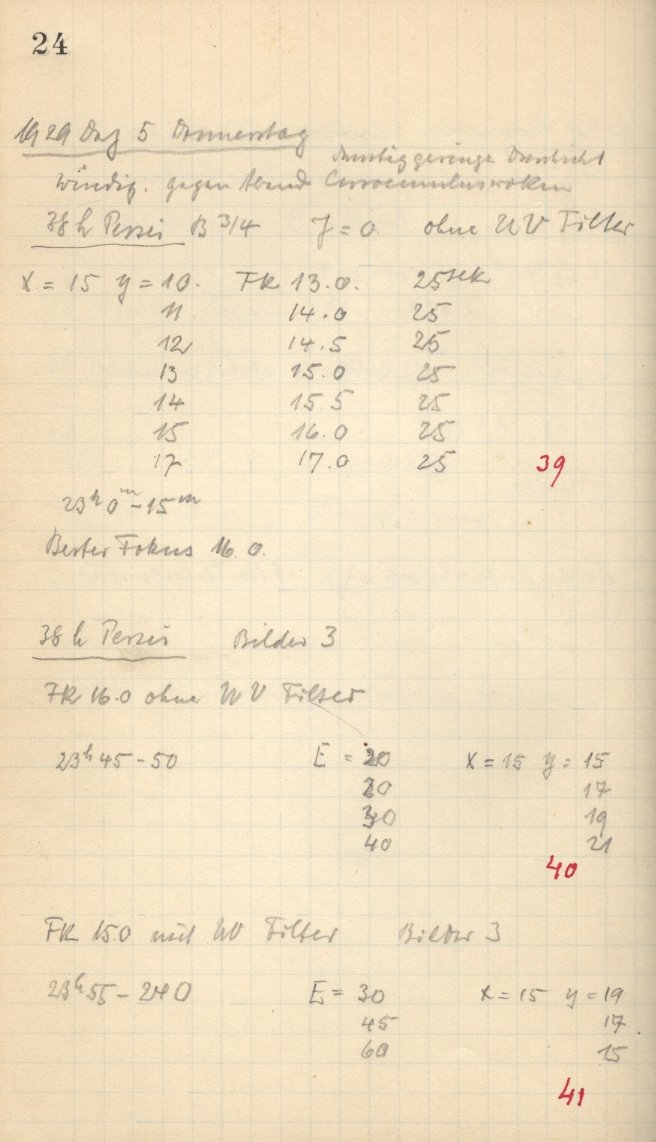 24
1929 Dez 5 Donnerstag
dunstig geringe Durchsicht
Windig. gegen Abend Cirrocumuluswolken
38 h Persei B 3/4 J = 0 ohne UV Filter
X = 15 y = 10. FK 13.0. 25 sek
11 14.0 25
12 14.5 25
13 15.0 25
14 15 5 25
15 16.0 25
17 17.0 25 39
23h 0m - 15m
Bester Fokus 16.0.
38 h Persei Bilder 3
FK 16.0 ohne UV Filter
23h 45 - 50 E = 20 X = 15 y = 15
20 17
30 19
40 21
40
FK 15.0 mit UV Filter Bilder 3
23h 55 - 24 0 E = 30 X = 15 y = 19
45 17
60 15
41